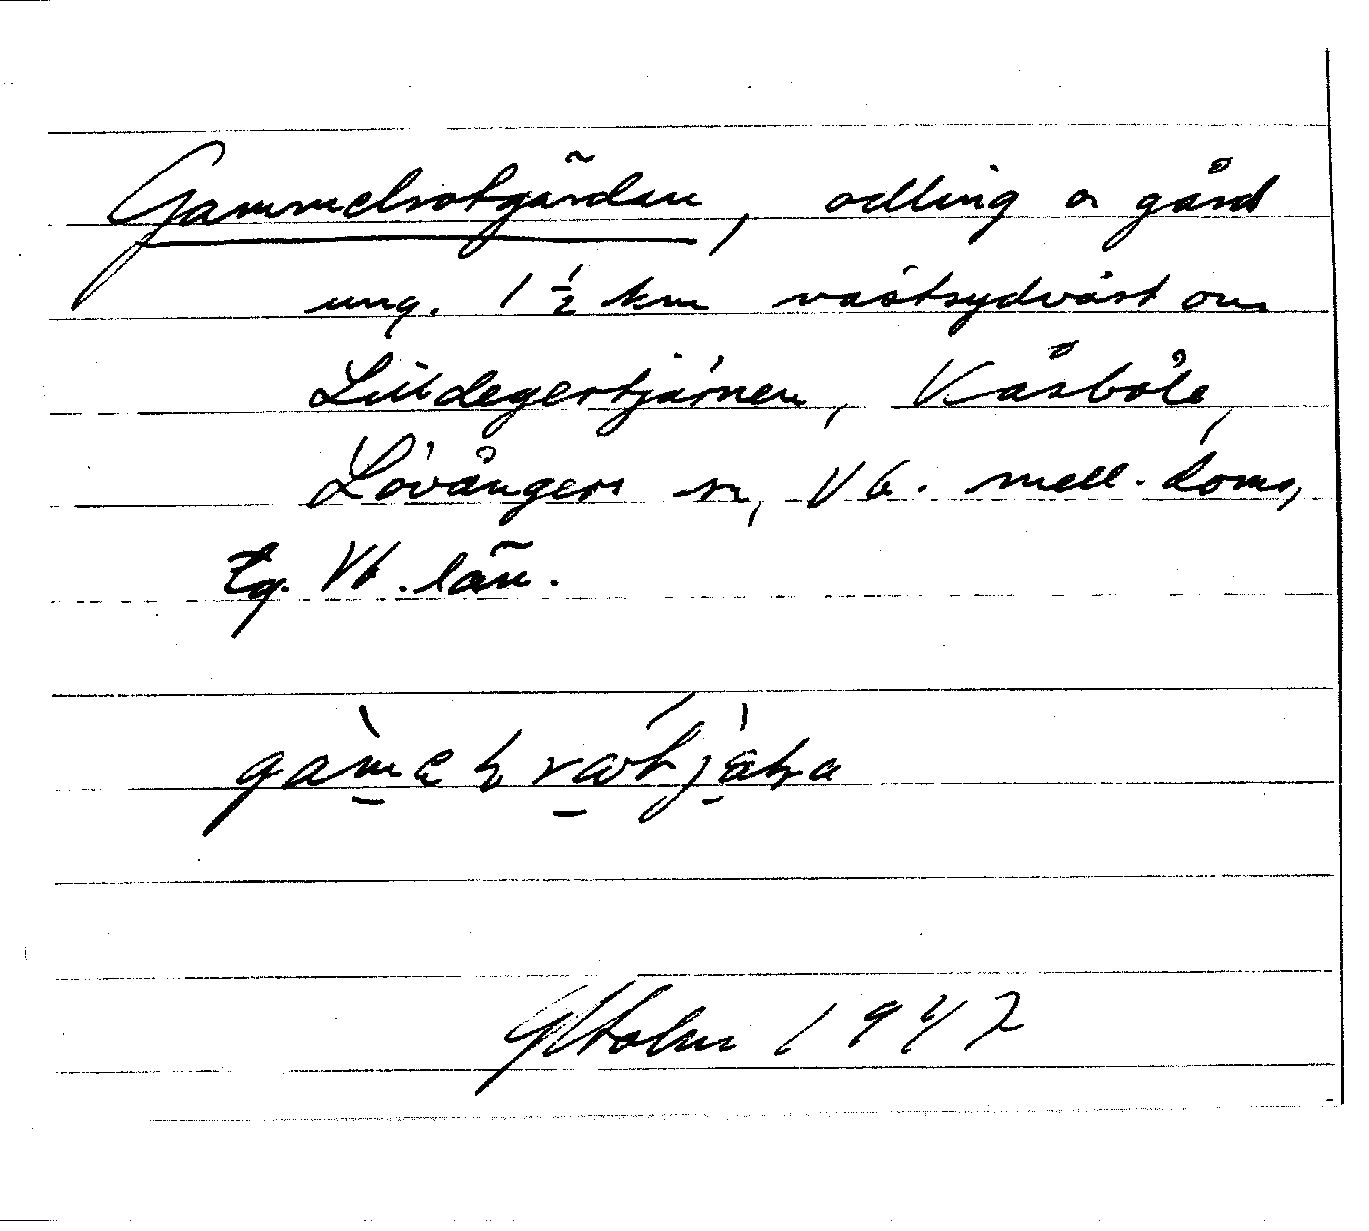 Gammelrotgärdan, odling o gård
ung. 1 ½ km västsydväst om
Lilldegertjärnen, Kåsböle,
Lövångers sn, Vb. mell. doms,
tg. Vb. län.
GHolm 1947